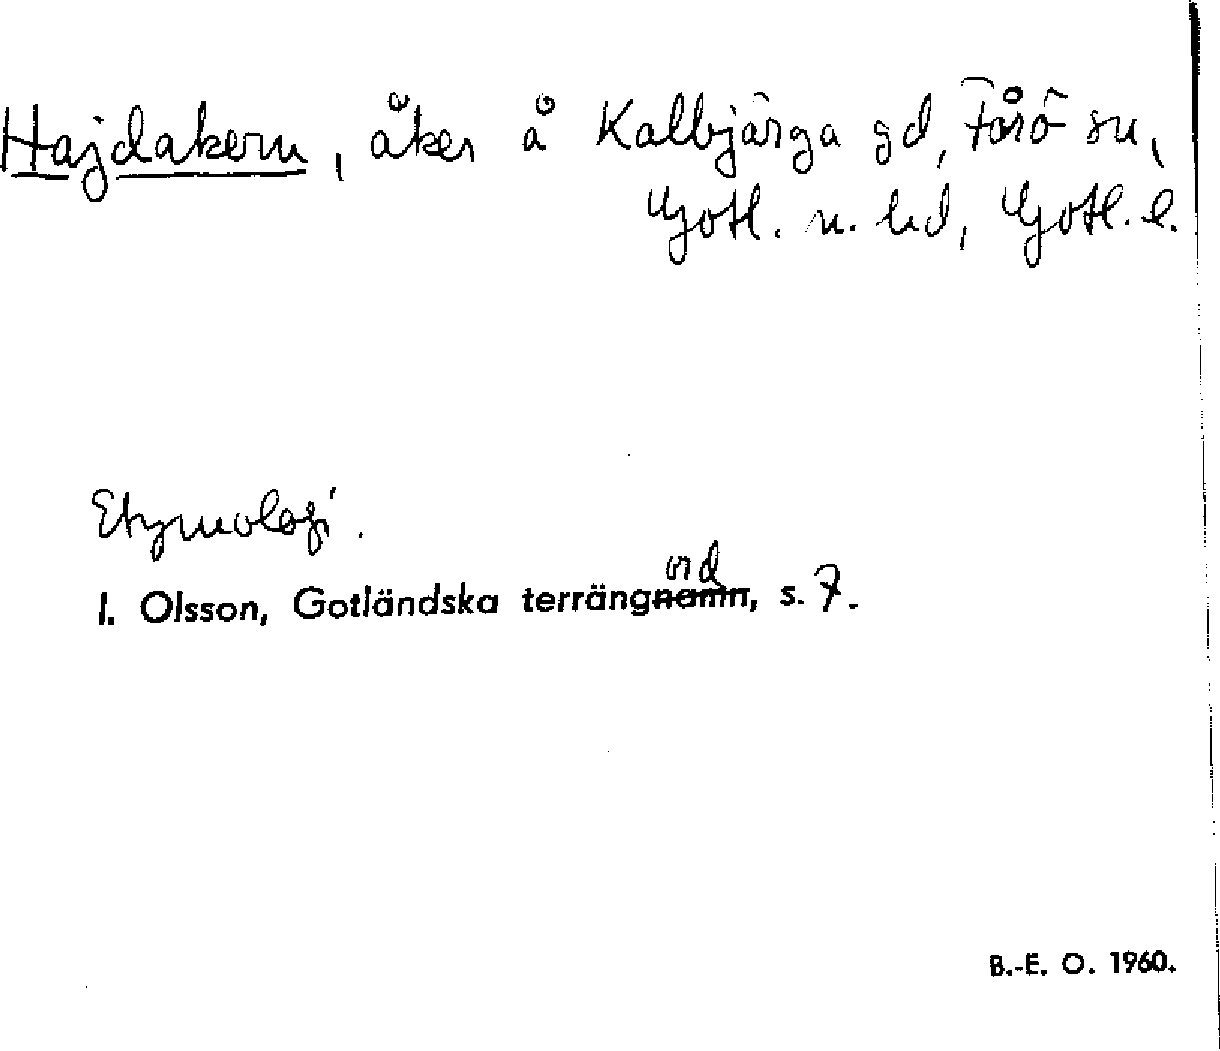 Hajdakern, åker å Kalbjärga gd, Fårö sn,
Gotl. n. hd, Gotl. l.
Etymologi.
I. Olsson, Gotländska terrängord, s. 7.
B.-E. O. 1960.